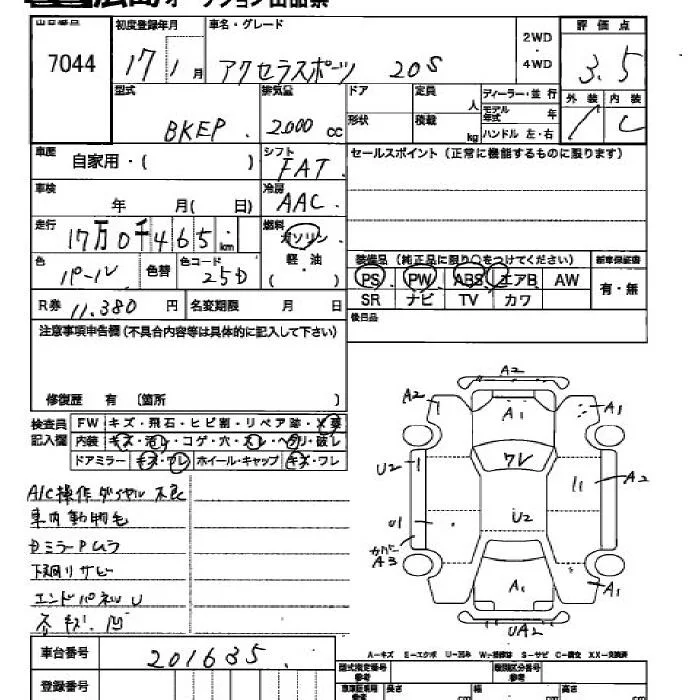 広島オークション出品票
出品番号 初度登録年月 車名・グレード 2WD・4WD 評価点
7044 17年1月 アクセラスポーツ 20S 3.5
型式 排気量 ドア 定員 人 ディーラー・並行 外装 内装
BKEP 2000cc 形状 積載 kg モデル年式 年 ハンドル 左・右 C
車歴 自家用・( ) シフト FAT セールスポイント(正常に機能するものに限ります)
車検 年 月( 日) 冷房 AAC
走行 17万0千465km 燃料 ガソリン・軽油( )
色 パール 色替 色コード 25D
装備品(純正品に限り○をつけてください) 新車保証書
PS PW ABS エアB AW 有・無
SR ナビ TV カワ
R券 11,380円 名変期限 月 日 後日品
注意事項申告欄(不具合内容等は具体的に記入して下さい)
修復歴 有 〔箇所 〕
検査員記入欄 FW キズ・飛石・ヒビ割・リペア跡・
内装 キズ・汚レ・コゲ・穴・スレ・ヘタリ・破レ
ドアミラー キズ・ワレ ホイール・キャップ キズ・ワレ
A/C操作ダイヤル不良
車内動物毛
DミラーPムラ
下廻リサビ
エンドパネルU
各キズ、凹
A2
A2 A1 A1
ワレ
U2 A2
U1 U2
カバーA3 A1 A1
UA2
A-キズ E-エクボ U-凹み W-補修跡 S-サビ C-腐食 XX-交換済
車台番号 201635
登録番号
型式指定番号 参考 類別区分番号 参考
長さ cm 幅 cm 高さ cm